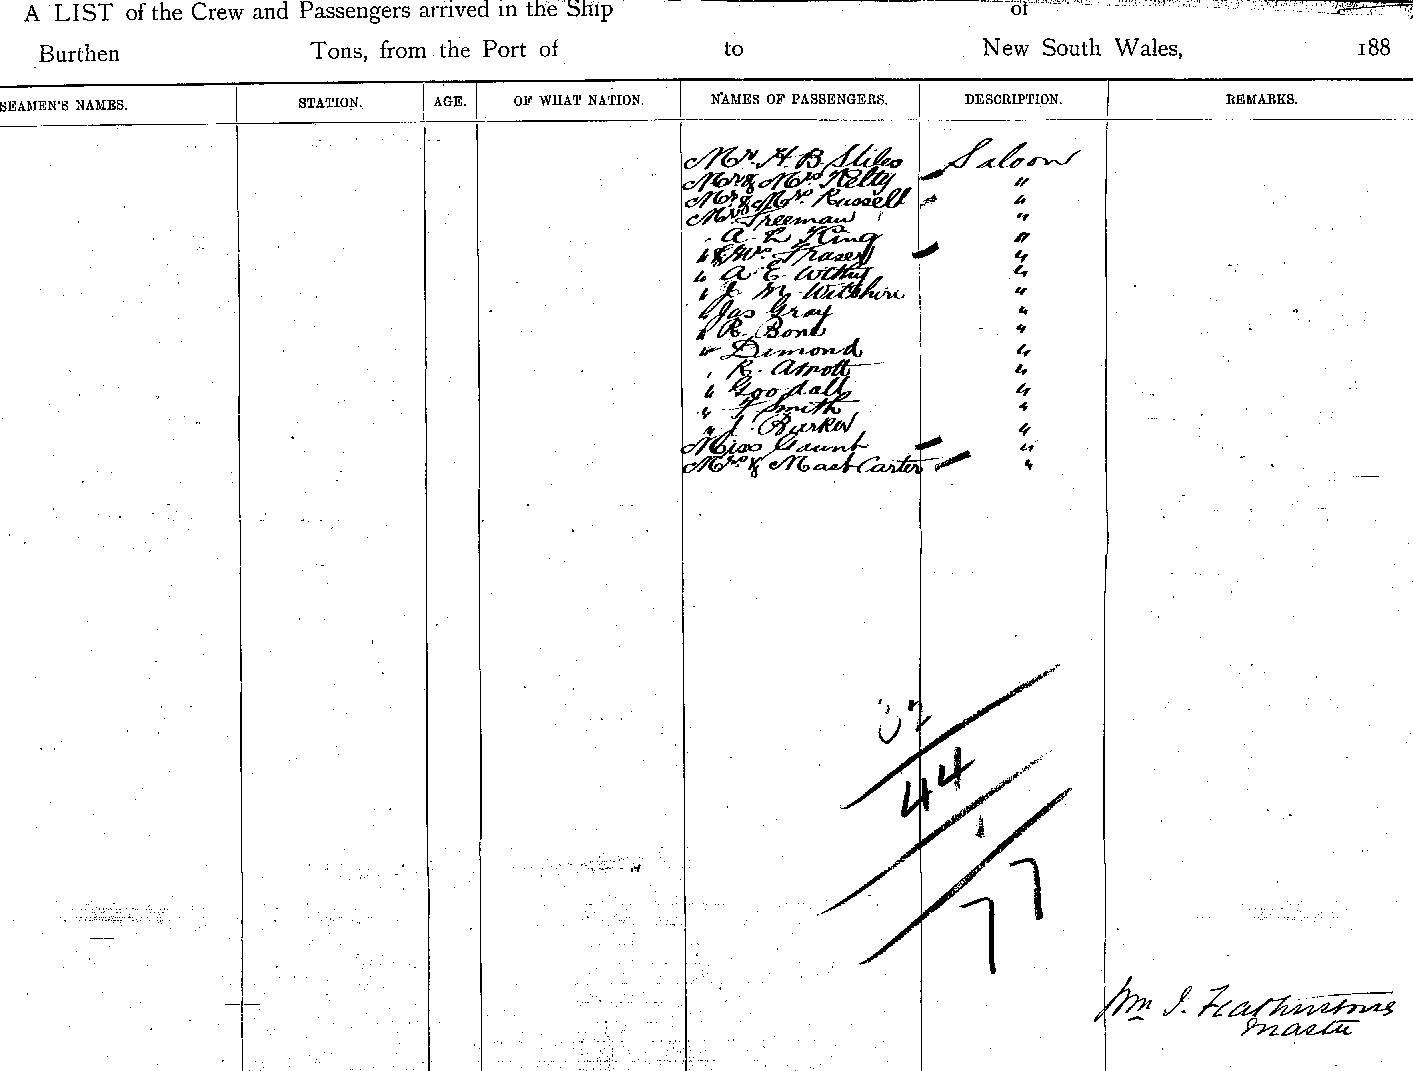 A LIST of the Crew and Passengers arrived in the Ship of
Burthen Tons, from the Port of to New South Wales, 188
SEAMEN'S NAMES. STATION. AGE. OF WHAT NATION. NAMES OF PASSENGERS. DESCRIPTION. REMARKS.
Mr. H. B. Stiles Saloon
Mr & Mrs Kelty "
Mr & Mrs Russell "
Mr Freeman "
" A. L. King "
" & Mrs Fraser "
" A E "
" J. M. Wiltshire "
" Jas Gray "
" R. Bone "
" Dimond "
" R. Arnott "
" Goodall "
" F Smith "
" J. Barker "
Miss Gaunt "
Mrs & Mast Carter "
32
44
1
77
Wm J. Featherstone
Master